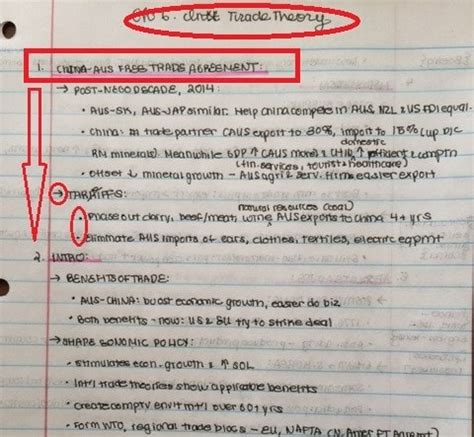 Ch 6. Int'l Trade Theory
1. CHINA-AUS FREE TRADE AGREEMENT:
→ POST-NEGO DECADE, 2014:
• AUS-SK, AUS-JAP similar. Help China compete in AUS, NZL & US FDI equal.
• China: #1 trade partner (AUS export to 30%, import to 15% (up b/c
domestic
RN minerals). Meanwhile GDP ↑ (AUS more) & CHIN ↑ efficient &
(fin. services, tourist & healthcare)
• Offset ↓ mineral growth - AUS agri & serv. firms easier export
→ TARIFFS:
natural resources (coal)
• Phase out dairy, beef/meat, wine, AUS exports to China 4+ yrs
• Eliminate AUS imports of cars, clothes, textiles, electric eqpmt
2. INTRO:
→ BENEFITS OF TRADE:
• AUS-CHINA: boost economic growth, easier do biz
• Both benefits - now: US & EU try to strike deal
→ SHAPE ECONOMIC POLICY:
• Stimulates econ. growth & ↑ SOL
• Int'l trade theories show applicable benefits
• Create comptv envir int'l over 60+ yrs
• Form WTO, regional trade blocs - EU, NAFTA (N. Amer FT Agrmt)